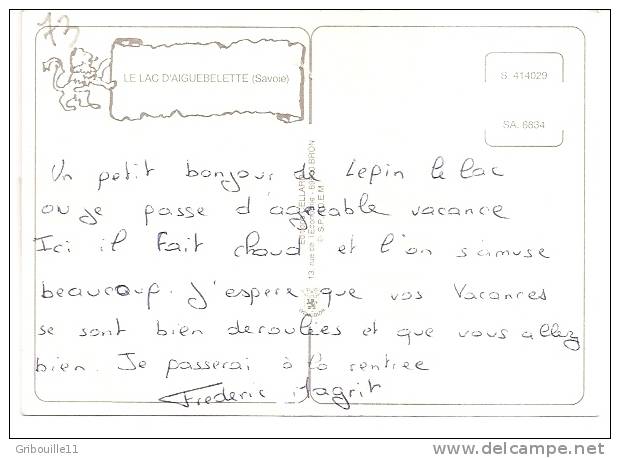 73
LE LAC D'AIGUEBELETTE (Savoie)
S. 414029
SA. 6834
Un petit bonjour de Lepin le lac
ou je passe d'agreable vacance
Ici il Fait chaud et l'on s'amuse
beaucoup. J'espere que vos Vacances
se sont bien deroulées et que vous allez
bien. Je passerai à la rentree
Frederic
Gribouille11
delcampe.net